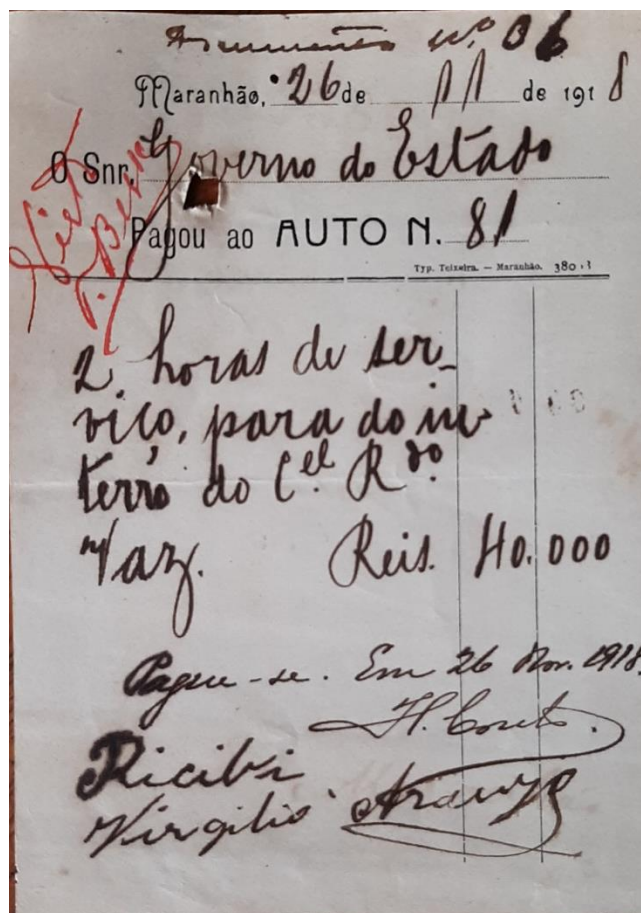 Documento Nº 36
Maranhão, 26 de 11 de 1918
O Snr. Governo do Estado
Pagou ao AUTO N. 81
Typ. Teixeira. — Maranhão. 380
Visto
2 horas de ser-
viço, para do in-
terro do Cel. Rdo.
Vaz. Reis. 40.000
Pague-se. Em 26 Nov. 1918.
H. Couto.
Ricibi
Virgilio Araujo